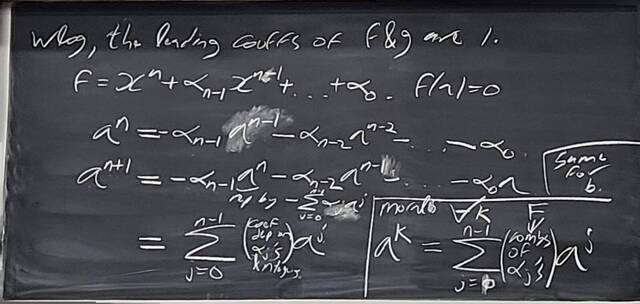 Wlog, the leading coeffs of f & g are 1.
f = x^n + α_{n-1} x^{n-1} + ... + α_0. f(a) = 0
a^n = -α_{n-1} a^{n-1} - α_{n-2} a^{n-2} ... - α_0
a^{n+1} = -α_{n-1} a^n - α_{n-2} a^{n-1} - ... - α_0 a
rep by - ∑_{j=0}^{n-1} α_j a^j
Same for b.
= ∑_{j=0}^{n-1} (coef dep on α_j's & integers) a^j
moral: ∀k
a^k = ∑_{j=0}^{n-1} (combs of α_j's) a^j